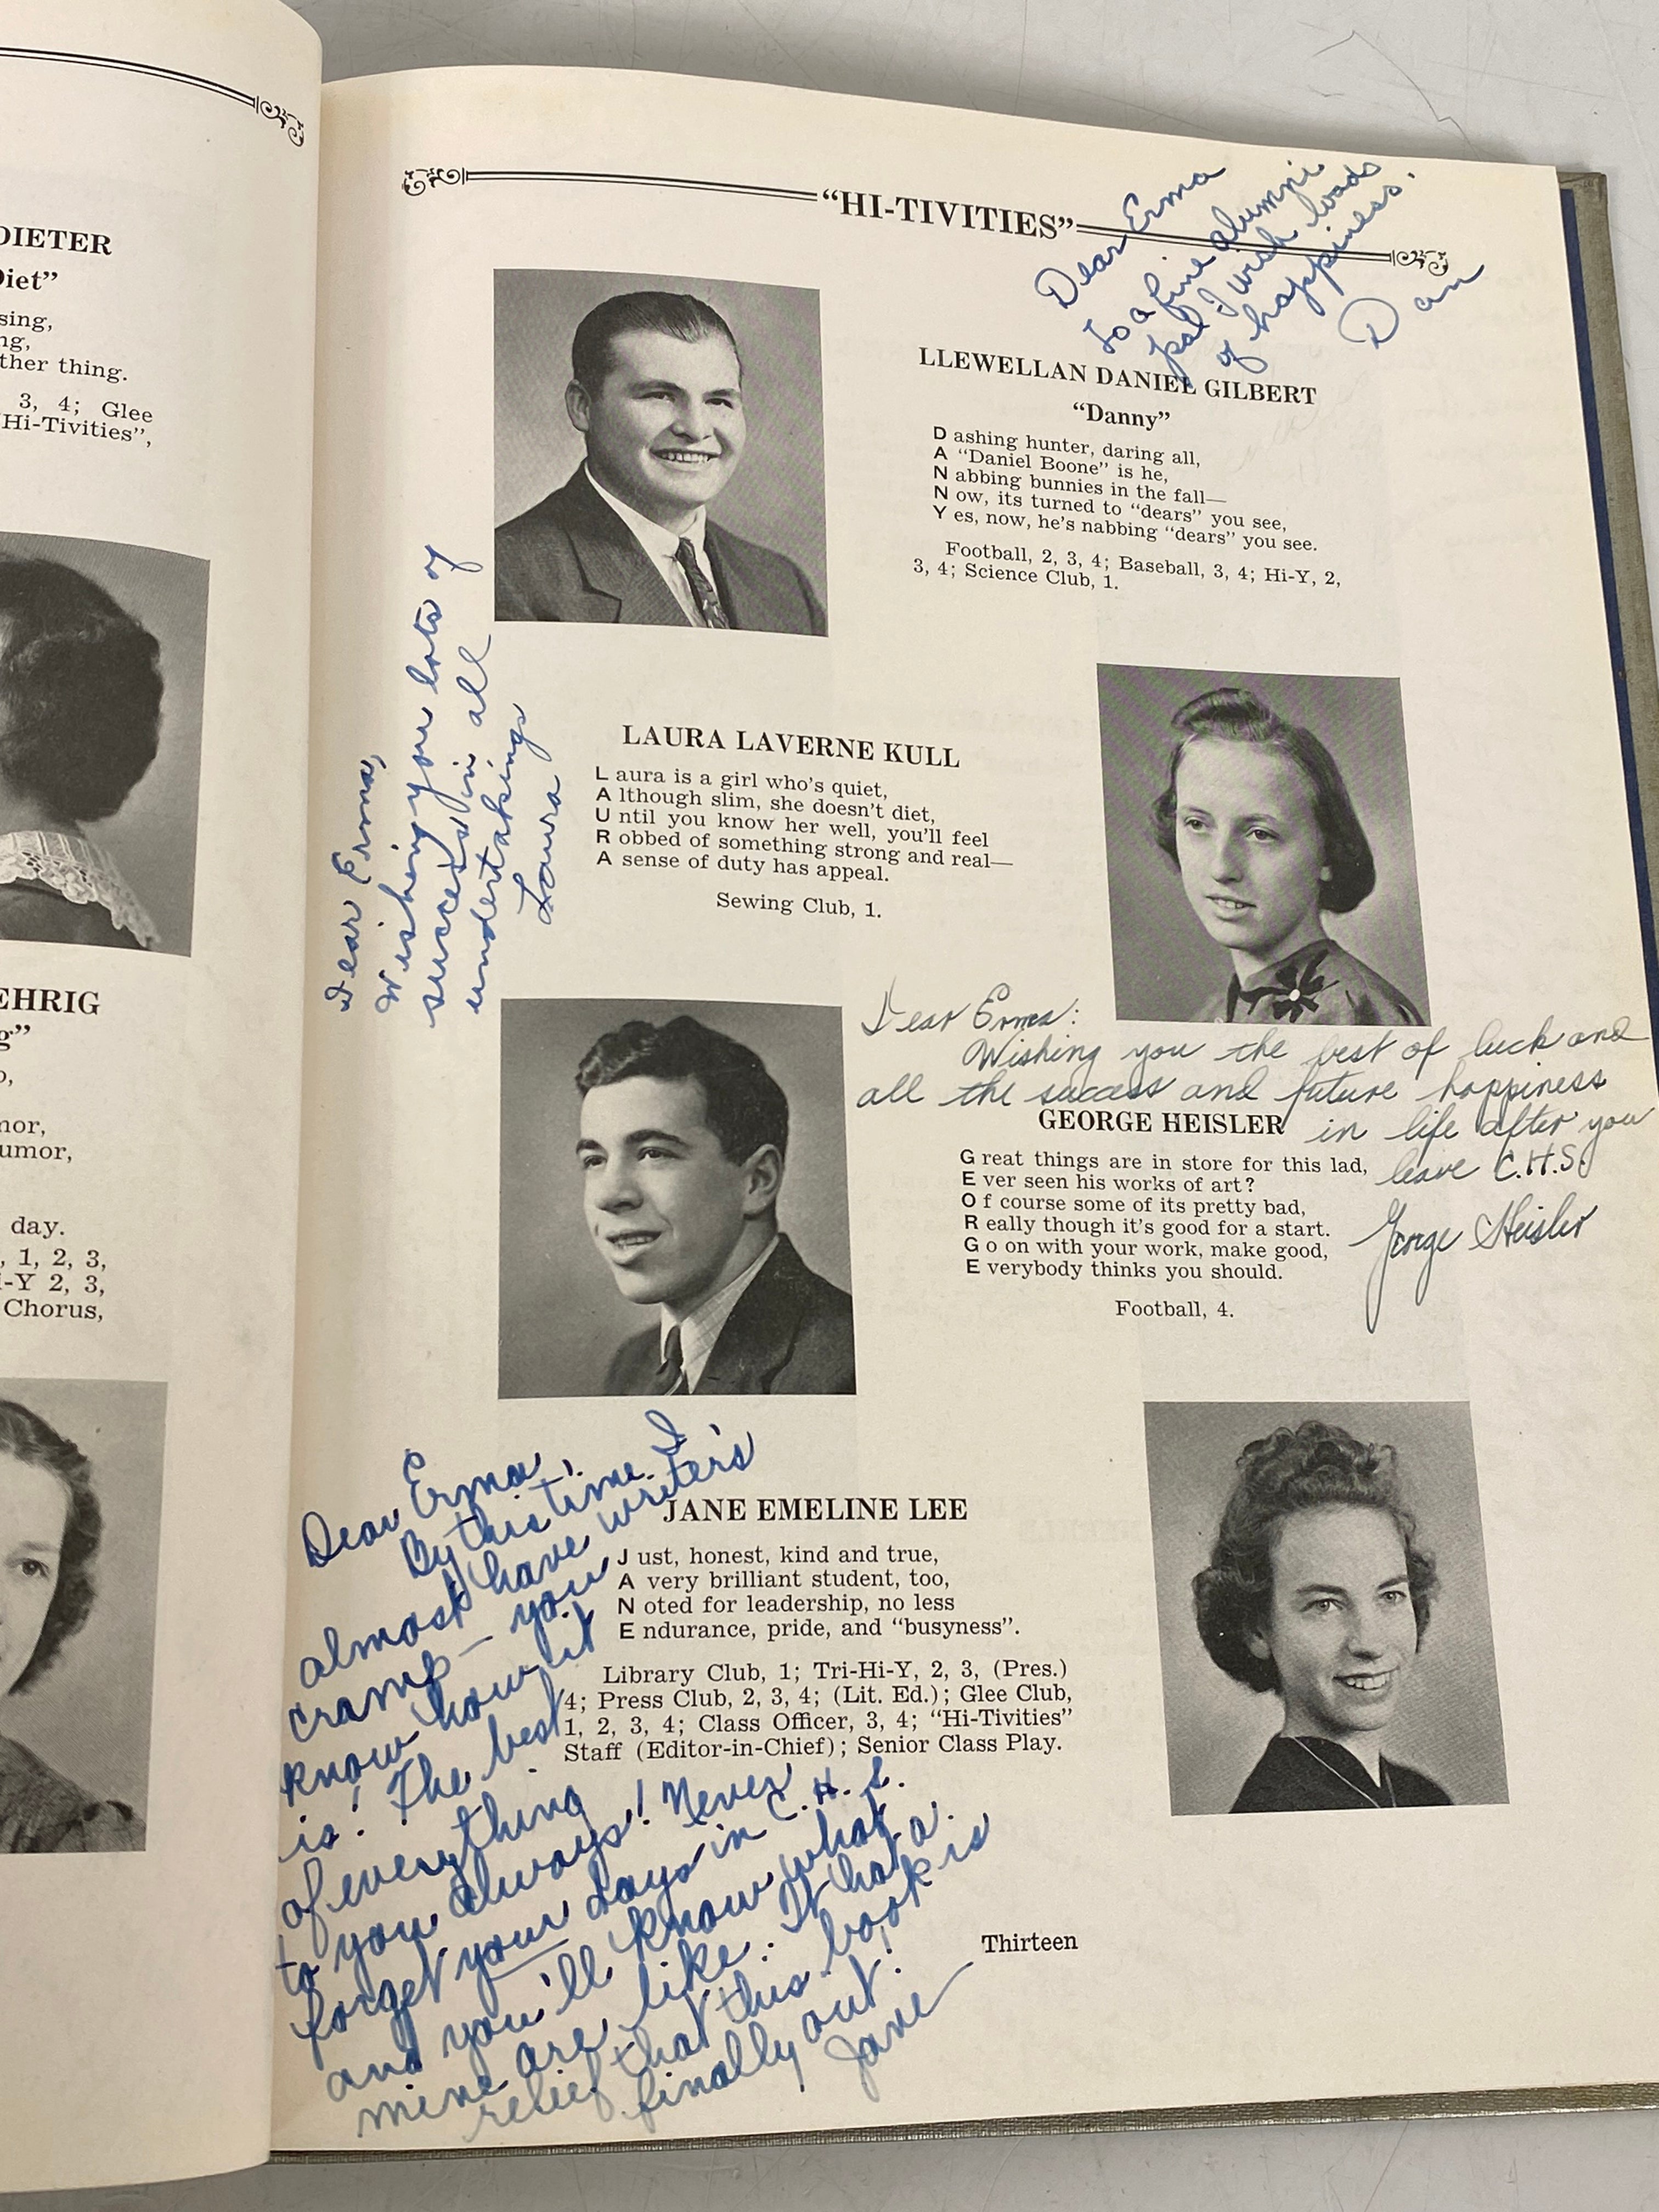 DIETER
Diet”
sing,
ng,
ther thing.
3, 4; Glee
“Hi-Tivities”,
EHRIG
g”
o,
nor,
umor,
day.
, 1, 2, 3,
i-Y 2, 3,
Chorus,
“HI-TIVITIES”
Dear Erma
To a fine alumni
pal I wish loads
of happiness.
Dan
LLEWELLAN DANIEL GILBERT
“Danny”
D ashing hunter, daring all,
A “Daniel Boone” is he,
N abbing bunnies in the fall—
N ow, its turned to “dears” you see,
Y es, now, he's nabbing “dears” you see.
Football, 2, 3, 4; Baseball, 3, 4; Hi-Y, 2,
3, 4; Science Club, 1.
Dear Erma,
Wishing you lots of
success in all
undertakings
Laura
LAURA LAVERNE KULL
L aura is a girl who's quiet,
A lthough slim, she doesn't diet,
U ntil you know her well, you'll feel
R obbed of something strong and real—
A sense of duty has appeal.
Sewing Club, 1.
Dear Erma:
Wishing you the best of luck and
all the success and future happiness
in life after you
leave C.H.S.
George Heisler
GEORGE HEISLER
G reat things are in store for this lad,
E ver seen his works of art?
O f course some of its pretty bad,
R eally though it's good for a start.
G o on with your work, make good,
E verybody thinks you should.
Football, 4.
Dear Erma,
By this time I
almost have writer's
cramp — you
know how it
is! The best
of everything
to you always! Never
forget your days in C.H.S.
and you'll know what
mine are like. It's that a
relief that this book is
finally out!
Jane
JANE EMELINE LEE
J ust, honest, kind and true,
A very brilliant student, too,
N oted for leadership, no less
E ndurance, pride, and “busyness”.
Library Club, 1; Tri-Hi-Y, 2, 3, (Pres.)
4; Press Club, 2, 3, 4; (Lit. Ed.); Glee Club,
1, 2, 3, 4; Class Officer, 3, 4; “Hi-Tivities”
Staff (Editor-in-Chief); Senior Class Play.
Thirteen